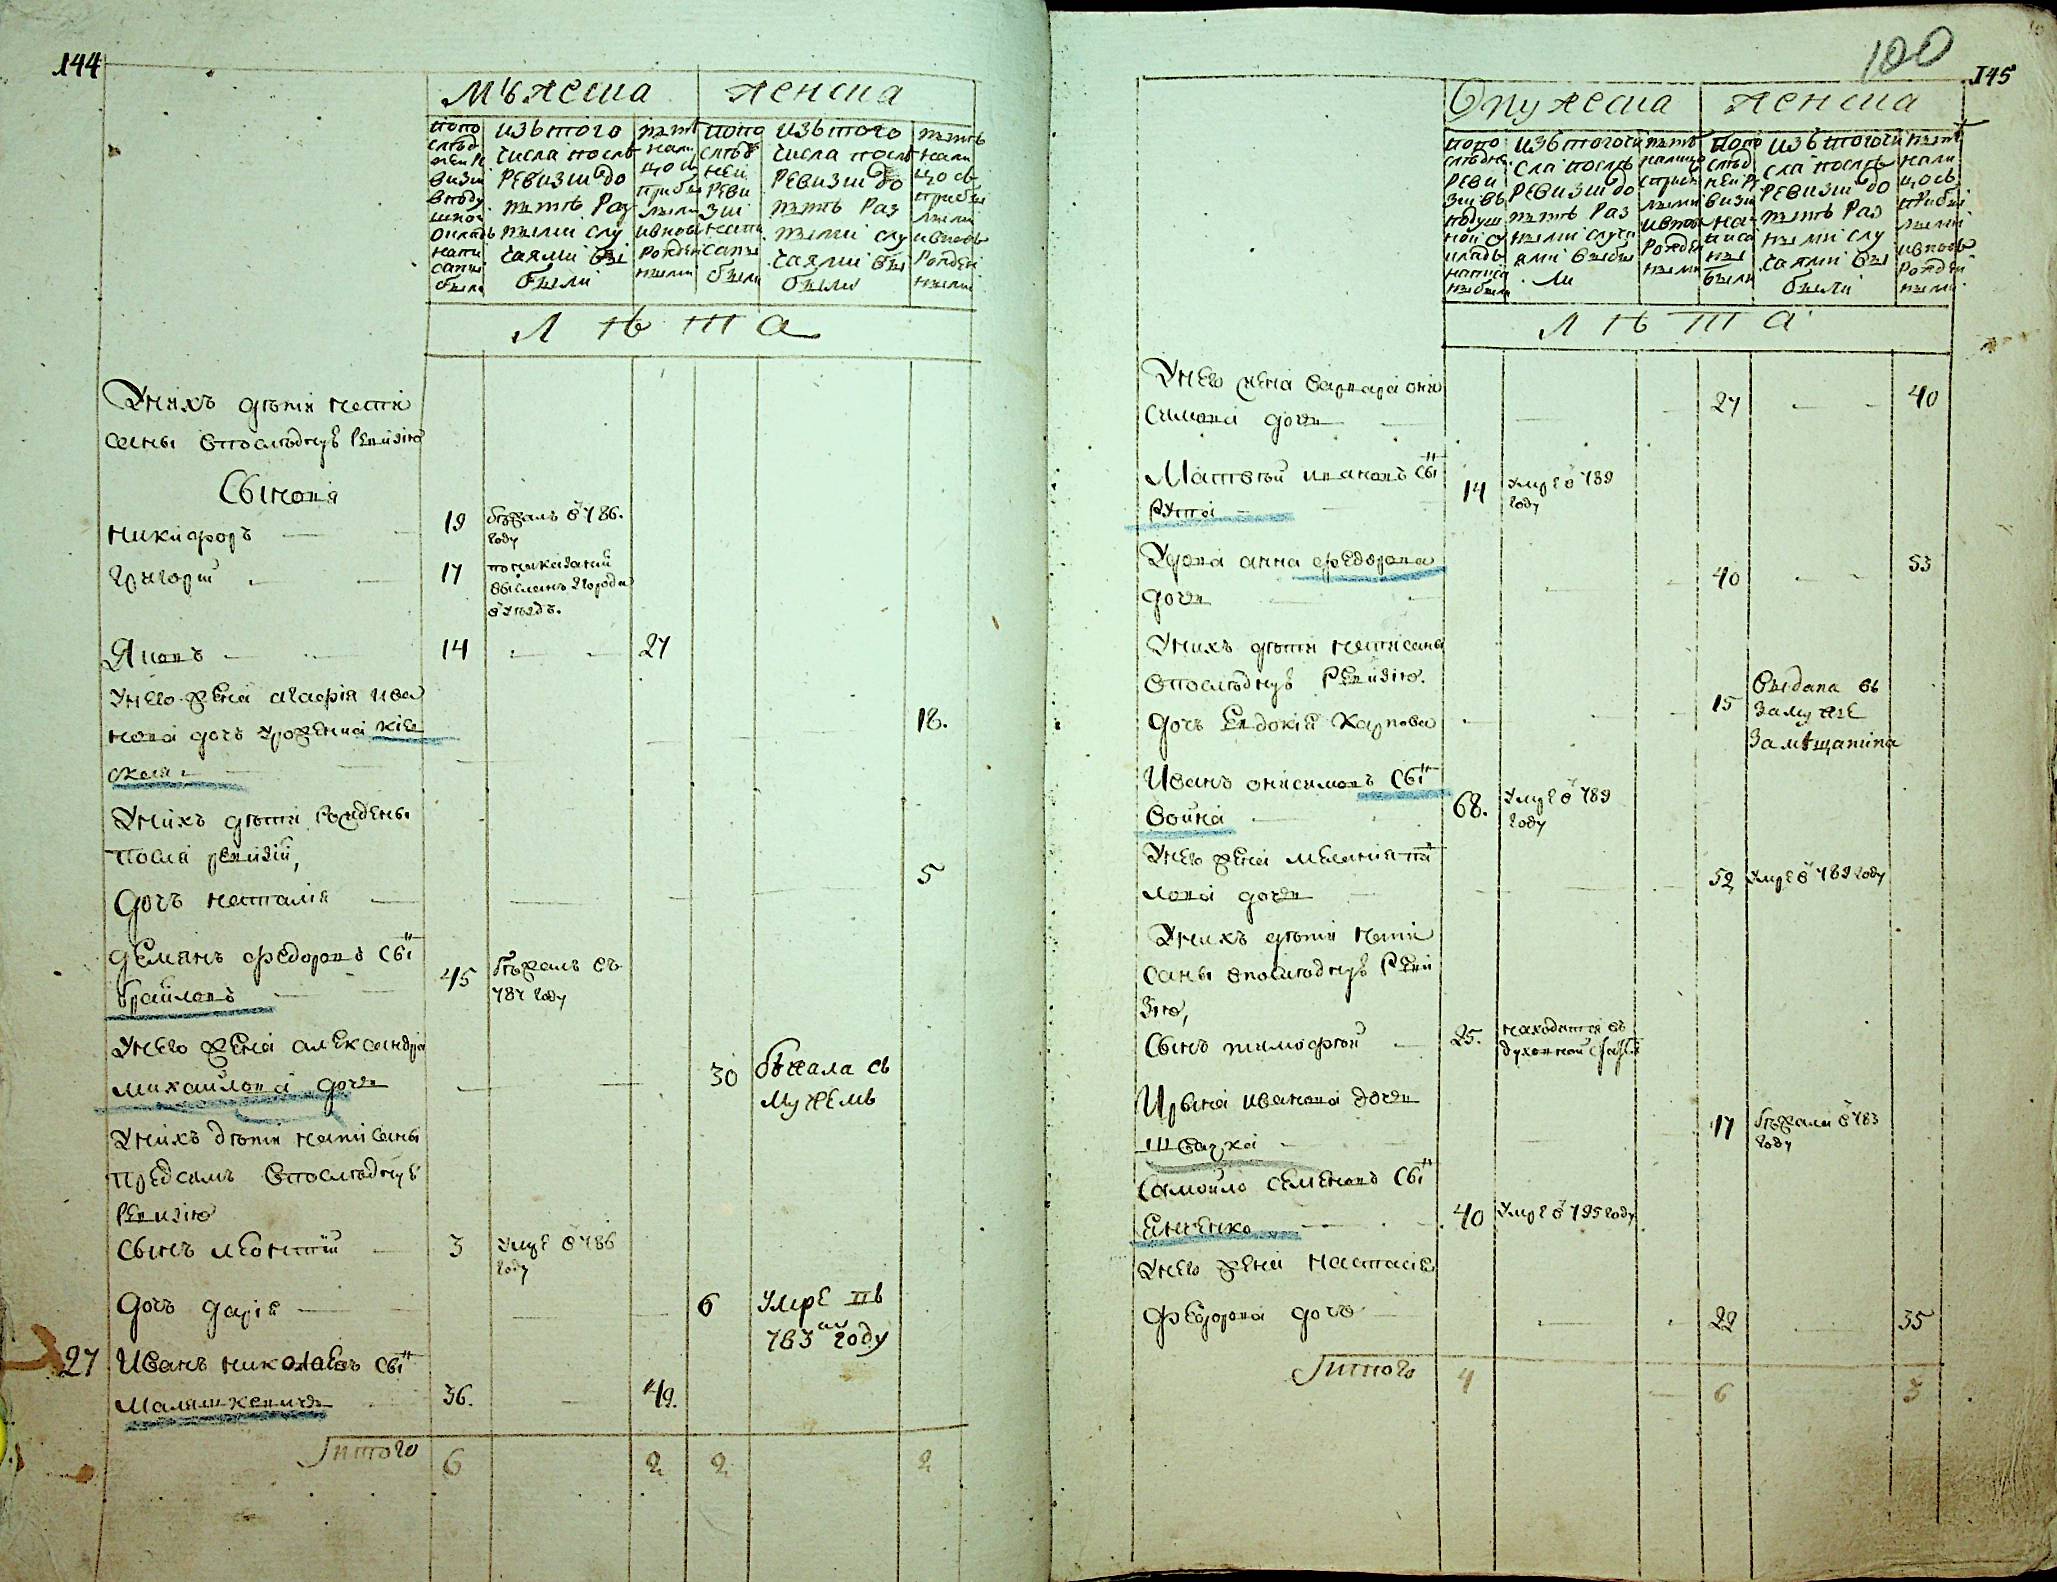 144
Мужеска женска
попо
слѣд
ней ре
визіи
вподу
шной
окладъ
напи
саны
были
изъ того
числа послѣ
ревизіи до
нынѣ раз
ными слу
чаями вы
были
нынѣ
нали
цо съ
прибы
лыми
ивновь
рожден
ными
попо
слѣд
ней
реви
зіи
напи
саны
были
изъ того
числа послѣ
ревизіи до
нынѣ раз
ными слу
чаями вы
были
нынѣ
нали
цо съ
прибы
лыми
ивновь
рожден
ными
Лѣта
Унихъ дѣти напи
саны впослѣдную ревизію
Сыновя
никифоръ 19 бѣжалъ в 786.
году
григорій 17 понаказаніи
высланъ згорода
в уездъ.
Яковъ 14 27
унего жена агафія ива
нова дочь урожениа кіе 18.
ская
Унихъ дѣти рождены
после ревизіи,
дочь наталія 5
демянъ федоровъ сынъ
браиловъ 45 бѣжалъ въ
787 году
унего жена александра
михаилова дочь 30 бѣжала съ
мужемъ
Унихъ дѣти написаны
предсамъ впослѣдную
ревизію
сынъ леонтій 3 умре в 786
году
дочь дарія 6 умре въ
783 году
27 Иванъ николаевъ сынъ
малашкевичь 36. 49.
Итого 6 2 2 2
100
145
Мужеска женска
попо
слѣдне
реви
зіи въ
подуш
ной о
кладъ
написа
ны были
изъ того чи
сла послѣ
ревизіи до
нынѣ раз
ными случа
ями выбы
ли
нынѣ
налицо
сприбы
лыми
ивновь
рожден
ными
попо
слѣд
ней ре
визіи
на
писа
ны
были
изъ того чи
сла послѣ
ревизіи до
нынѣ раз
ными слу
чаями вы
были
нынѣ
нали
цо съ
прибы
лыми
ивновь
рожден
ными
Лѣта
Унего жена варвара они
симова дочь 27 40
Матвей ивановъ сынъ
рута 14 умре в 789
году
Удова анна федорова
дочь 40 53
Унихъ дети написаны
впослѣдную ревизію.
дочь Евдокія Карпова 15 выдана въ
замуже
замѣщанина
Иванъ онисимовъ сынъ
воина 68. умре в 789
году
унего жена меланія па
лова дочь 52 умре в 789 году
Унихъ дѣти напи
саны впослѣдную реви
зію,
сынъ тимофей 25. находится въ
духовной
Ирина иванова дочь
швачка 17 бѣжала в 783
году
самойло семеновъ сынъ
Енченко 40 умре в 795 году
унего жена настасія
федорова дочь 22 35
Итого 4 6 3